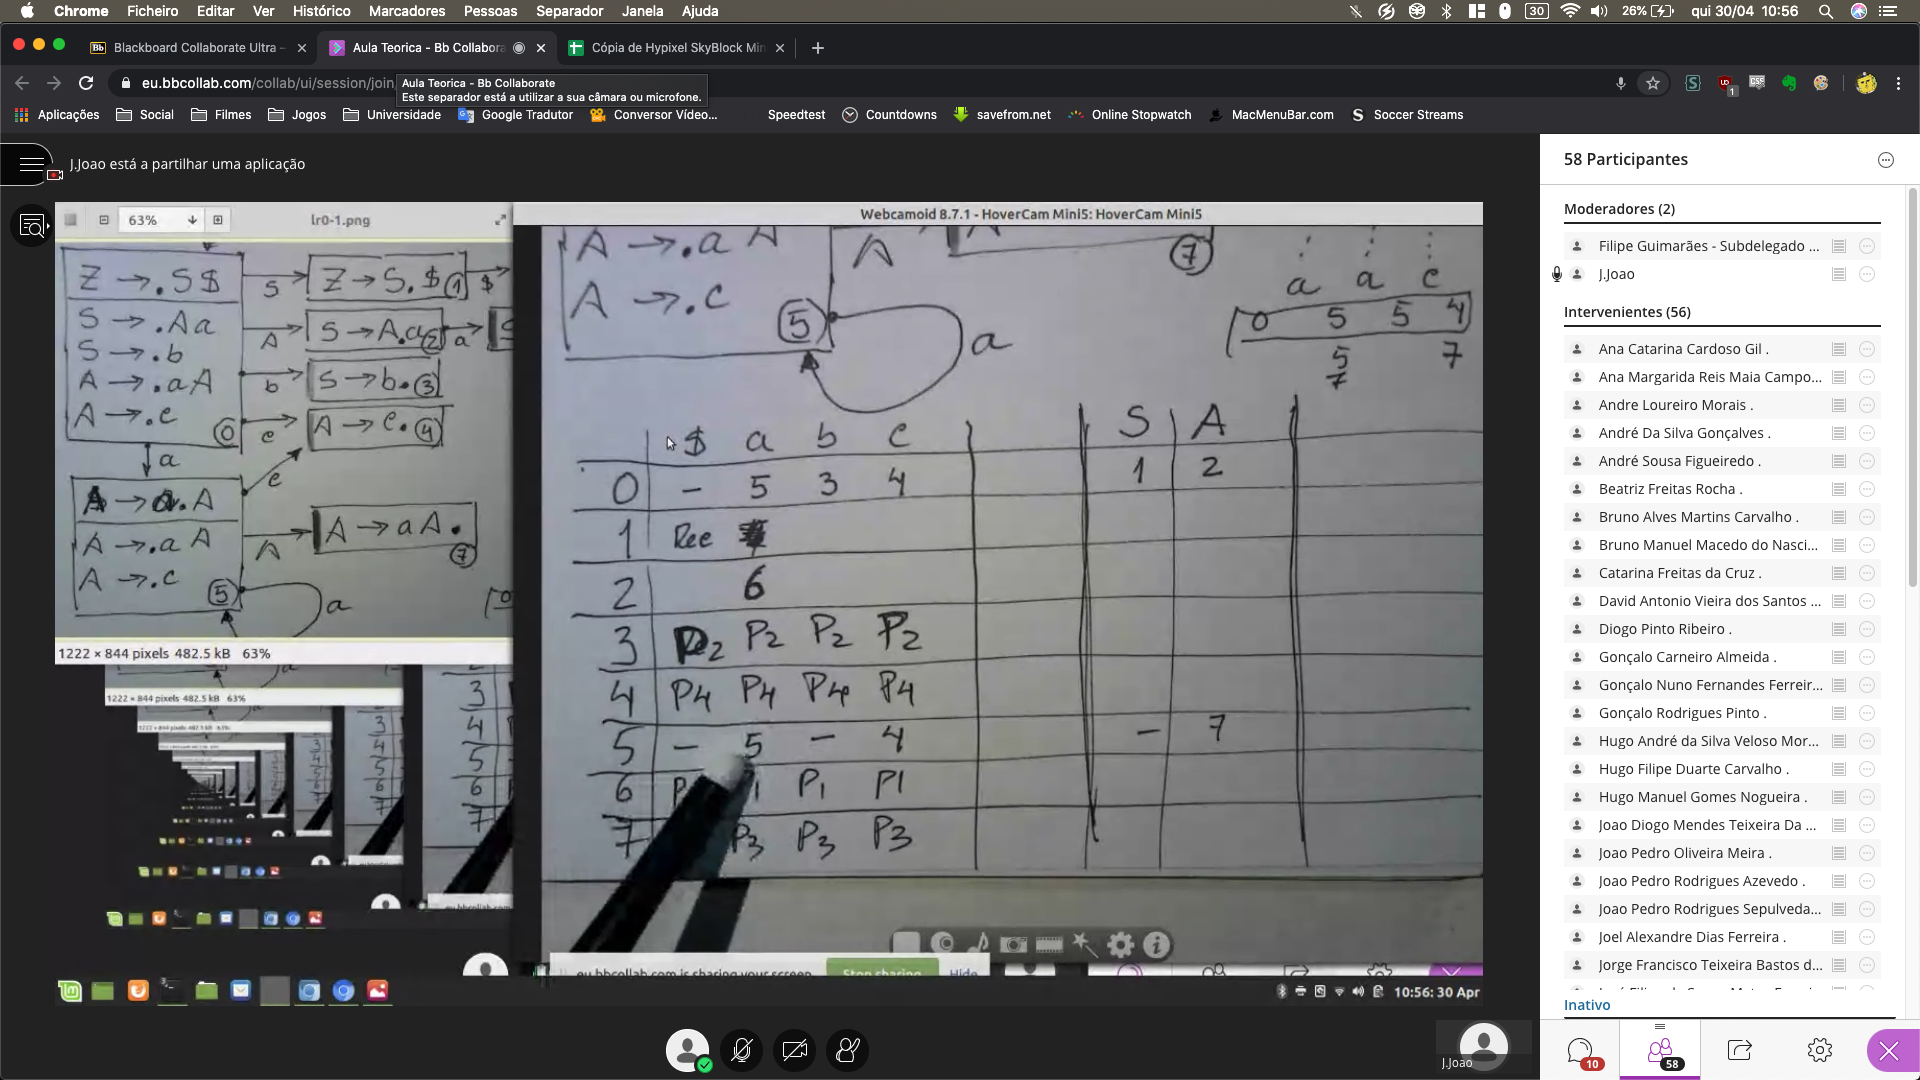 Chrome Ficheiro Editar Ver Histórico Marcadores Pessoas Separador Janela Ajuda
30 26% qui 30/04 10:56
Bb Blackboard Collaborate Ultra –
Aula Teorica - Bb Collabora
Cópia de Hypixel SkyBlock Min
eu.bbcollab.com/collab/ui/session/join
Aula Teorica - Bb Collaborate
Este separador está a utilizar a sua câmara ou microfone.
Aplicações Social Filmes Jogos Universidade Google Tradutor Conversor Vídeo... Speedtest Countdowns savefrom.net Online Stopwatch MacMenuBar.com Soccer Streams
J.Joao está a partilhar uma aplicação
63% lr0-1.png
Z → .S$
S
Z → S.$ 1 $
S → .Aa
A
S → A.a 2 a
S → .b
b
S → b. 3
A → .aA
A → .c
0
c
A → c. 4
a
A → a.A
c
A → .a A
A
A → aA. 7
A → .c
5
a
1222 × 844 pixels 482.5 kB 63%
1222 × 844 pixels 482.5 kB 63%
Webcamoid 8.7.1 - HoverCam Mini5: HoverCam Mini5
A → .a A
A
7
A → .c
5
a
a a c
0 5 5 4
5 7
7
$ a b c S A
0 – 5 3 4 1 2
1 Rec
2 6
3 P2 P2 P2 P2
4 P4 P4 P4 P4
5 – 5 – 4 – 7
6 P 1 P1 P1
7 P3 P3 P3
eu.bbcollab.com is sharing your screen Stop sharing Hide
10:56: 30 Apr
J.Joao
58 Participantes
Moderadores (2)
Filipe Guimarães - Subdelegado ...
J.Joao
Intervenientes (56)
Ana Catarina Cardoso Gil .
Ana Margarida Reis Maia Campo...
Andre Loureiro Morais .
André Da Silva Gonçalves .
André Sousa Figueiredo .
Beatriz Freitas Rocha .
Bruno Alves Martins Carvalho .
Bruno Manuel Macedo do Nasci...
Catarina Freitas da Cruz .
David Antonio Vieira dos Santos ...
Diogo Pinto Ribeiro .
Gonçalo Carneiro Almeida .
Gonçalo Nuno Fernandes Ferreir...
Gonçalo Rodrigues Pinto .
Hugo André da Silva Veloso Mor...
Hugo Filipe Duarte Carvalho .
Hugo Manuel Gomes Nogueira .
Joao Diogo Mendes Teixeira Da ...
Joao Pedro Oliveira Meira .
Joao Pedro Rodrigues Azevedo .
Joao Pedro Rodrigues Sepulveda...
Joel Alexandre Dias Ferreira .
Jorge Francisco Teixeira Bastos d...
Inativo
10 58